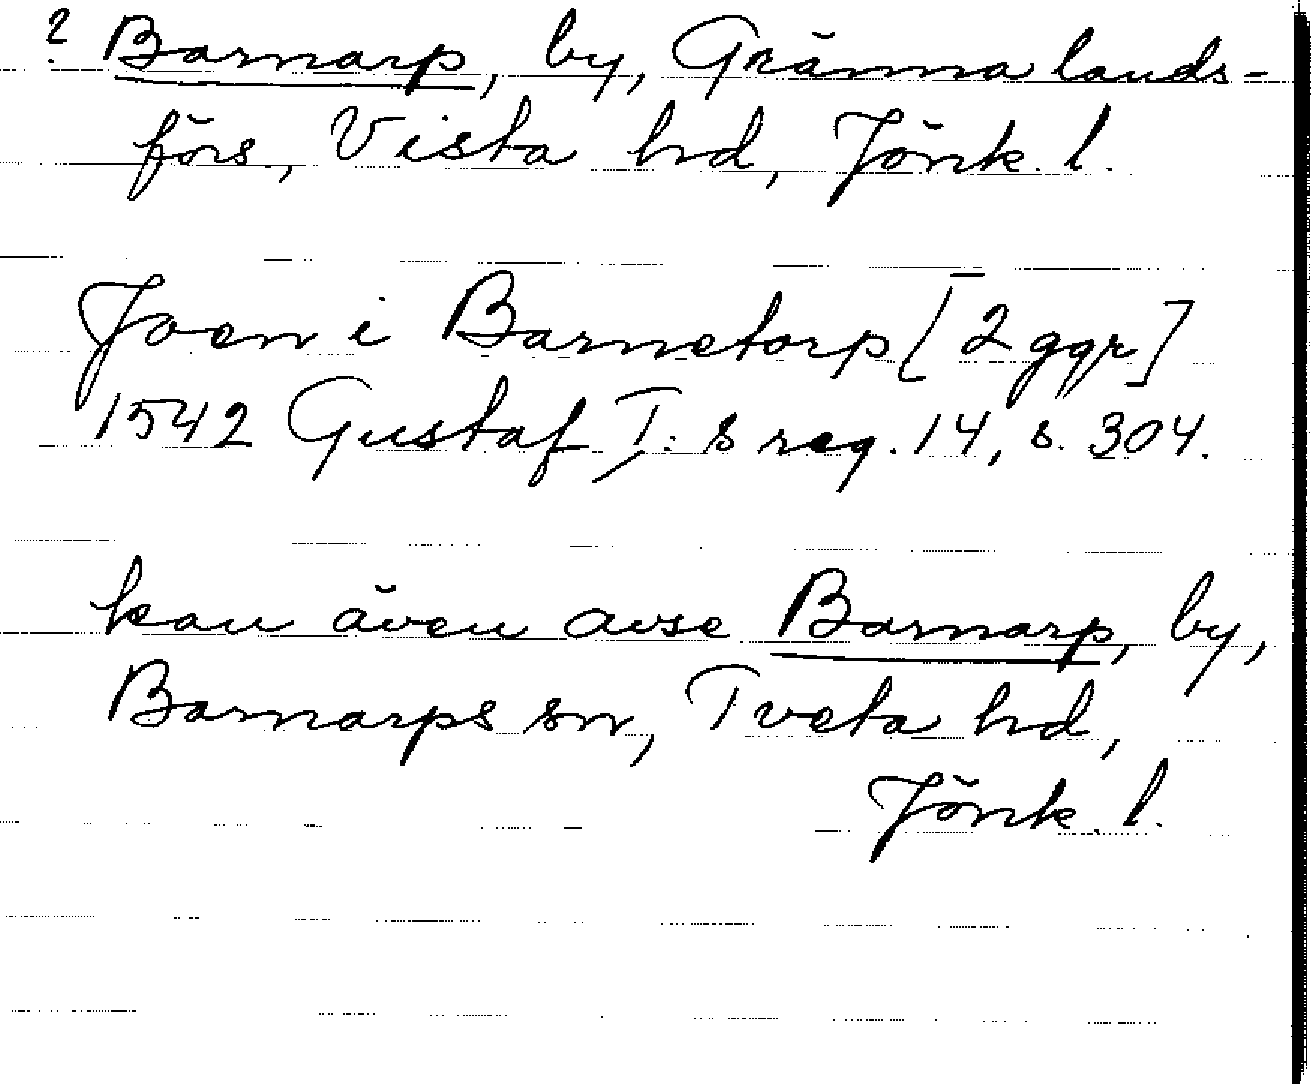 ? Barnarp, by, Gränna lands-
förs, Vista hd, Jönk. l.
Joen i Barnetorp [2 ggr]
1542 Gustaf I:s reg. 14, s. 304.
kan även avse Barnarp, by,
Barnarps sn, Tveta hd,
Jönk. l.